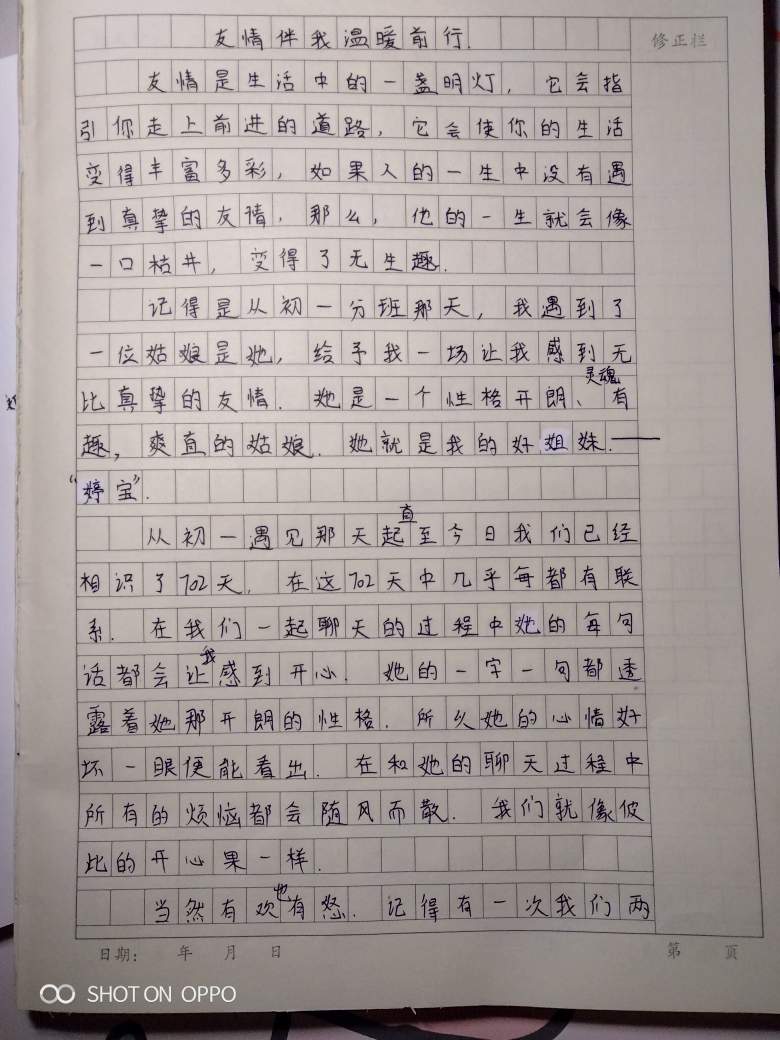 友情伴我温暖前行.
修正栏
友情是生活中的一盏明灯，它会指
引你走上前进的道路，它会使你的生活
变得丰富多彩，如果人的一生中没有遇
到真挚的友情，那么，他的一生就会像
一口枯井，变得了无生趣.
记得是从初一分班那天，我遇到了
一位姑娘是她，给予我一场让我感到无
比真挚的友情.她是一个性格开朗、灵魂有
趣，爽直的姑娘.她就是我的好姐妹.——
“婷宝”.
从初一遇见那天起直至今日我们已经
相识了702天，在这702天中几乎每都有联
系.在我们一起聊天的过程中她的每句
话都会让我感到开心.她的一字一句都透
露着她那开朗的性格.所以她的心情好
坏一眼便能看出.在和她的聊天过程中
所有的烦恼都会随风而散.我们就像彼
此的开心果一样.
当然有欢也有怒.记得有一次我们两
日期： 年 月 日
第 页
SHOT ON OPPO